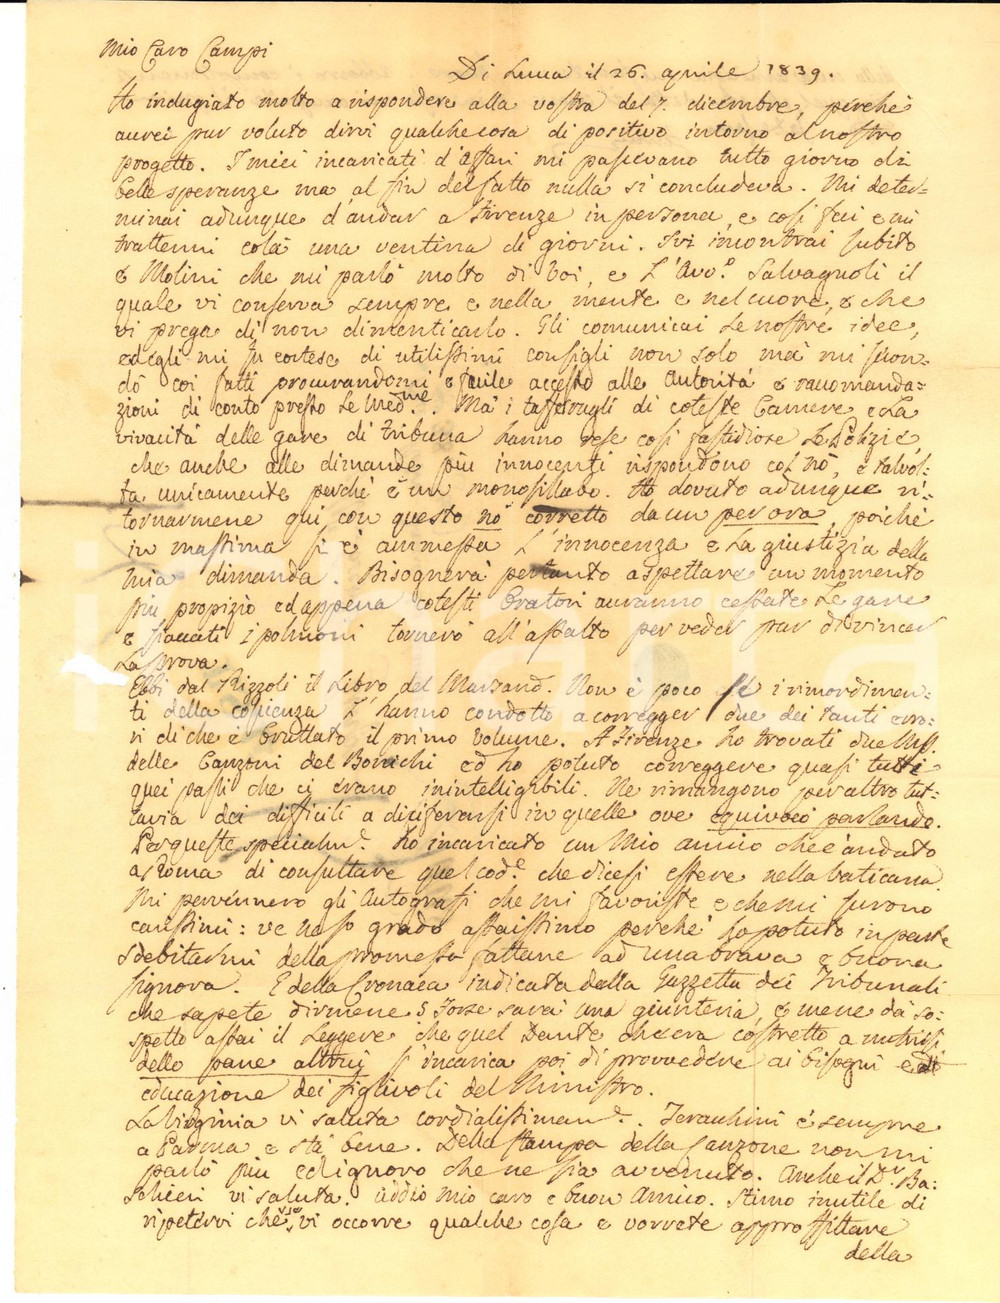 Mio Caro Campi
Di Lucca il 26. aprile 1839.
Ho indugiato molto a rispondere alla vostra del 7. dicembre, perché
avrei pur voluto dirvi qualche cosa di positivo intorno al nostro
progetto. I miei incaricati d'affari mi pascevano tutto giorno di
belle speranze ma al fin del fatto nulla si concludeva. Mi deter-
minai adunque d'andar a Firenze in persona, e così feci e mi
trattenni colà una ventina di giorni. Ivi incontrai subito
il Molini che mi parlò molto di Voi, e l'Avv.o Salvagnoli il
quale vi conserva sempre e nella mente e nel cuore, e che
vi prega di non dimenticarlo. Gli comunicai le nostre idee,
ed egli mi fu cortese di utilissimi consigli non solo ma mi secon-
dò coi fatti procurandomi e facile accesso alle Autorità e raccomanda-
zioni di conto presso le med.me. Ma i tafferugli di coteste Camere e la
vivacità delle gare di tribuna hanno rese così fastidiose le Polizie
che anche alle dimande più innocenti rispondono col nò, e talvol-
ta unicamente perché è un monosillabo. Ho dovuto adunque ri-
tornarmene qui con questo nò corretto da un per ora, poiché
in massima si è ammessa l'innocenza e la giustizia della
mia dimanda. Bisognerà pertanto aspettare un momento
più propizio ed appena cotesti Oratori avranno cessate le gare
e fiaccati i polmoni tornerò all'assalto per veder pur di vincer
la prova.
Ebbi dal Rizzoli il libro del Marsand. Non è poco se i rimordimen-
ti della coscienza l'hanno condotto a corregger due dei tanti erro-
ri di che è bruttato il primo Volume. A Firenze ho trovati due Mss.
delle Canzoni del Bonichi ed ho potuto correggere quasi tutti
quei passi che ci erano inintelligibili. Ne rimangono per altro tut-
tavia dei difficili a diciferarsi in quelle ove equivoci parlando.
Per queste specialm.e ho incaricato un mio amico che è andato
a Roma di consultare quel cod.e che dicesi essere nella Vaticana.
Mi pervennero gli Autografi che mi favoriste e che mi furono
carissimi: ve ne so grado assaissimo perché ho potuto in parte
sdebitarmi della promessa fattane ad una brava e buona
signora. E della Cronaca indicata dalla Gazzetta dei Tribunali
che sapete dirmene? Forse sarà una giunteria, e mene dà so-
spetto assai il leggere che quel Dante che era costretto a nutrirsi
dello pane altrui s'incarica poi di provvedere ai bisogni e di
educazione dei figlivoli del Ministro.
La Virginia vi saluta cordialissimam.e. Terauchini è sempre
a Parma e stà bene. Della stampa della Canzone non mi
parlò più ed ignoro che ne sia avvenuto. Anche il D.r Ba-
schieri vi saluta. Addio mio caro e buon Amico. Stimo inutile di
ripetervi che vi occorre qualche cosa e vorrete approfittare
della